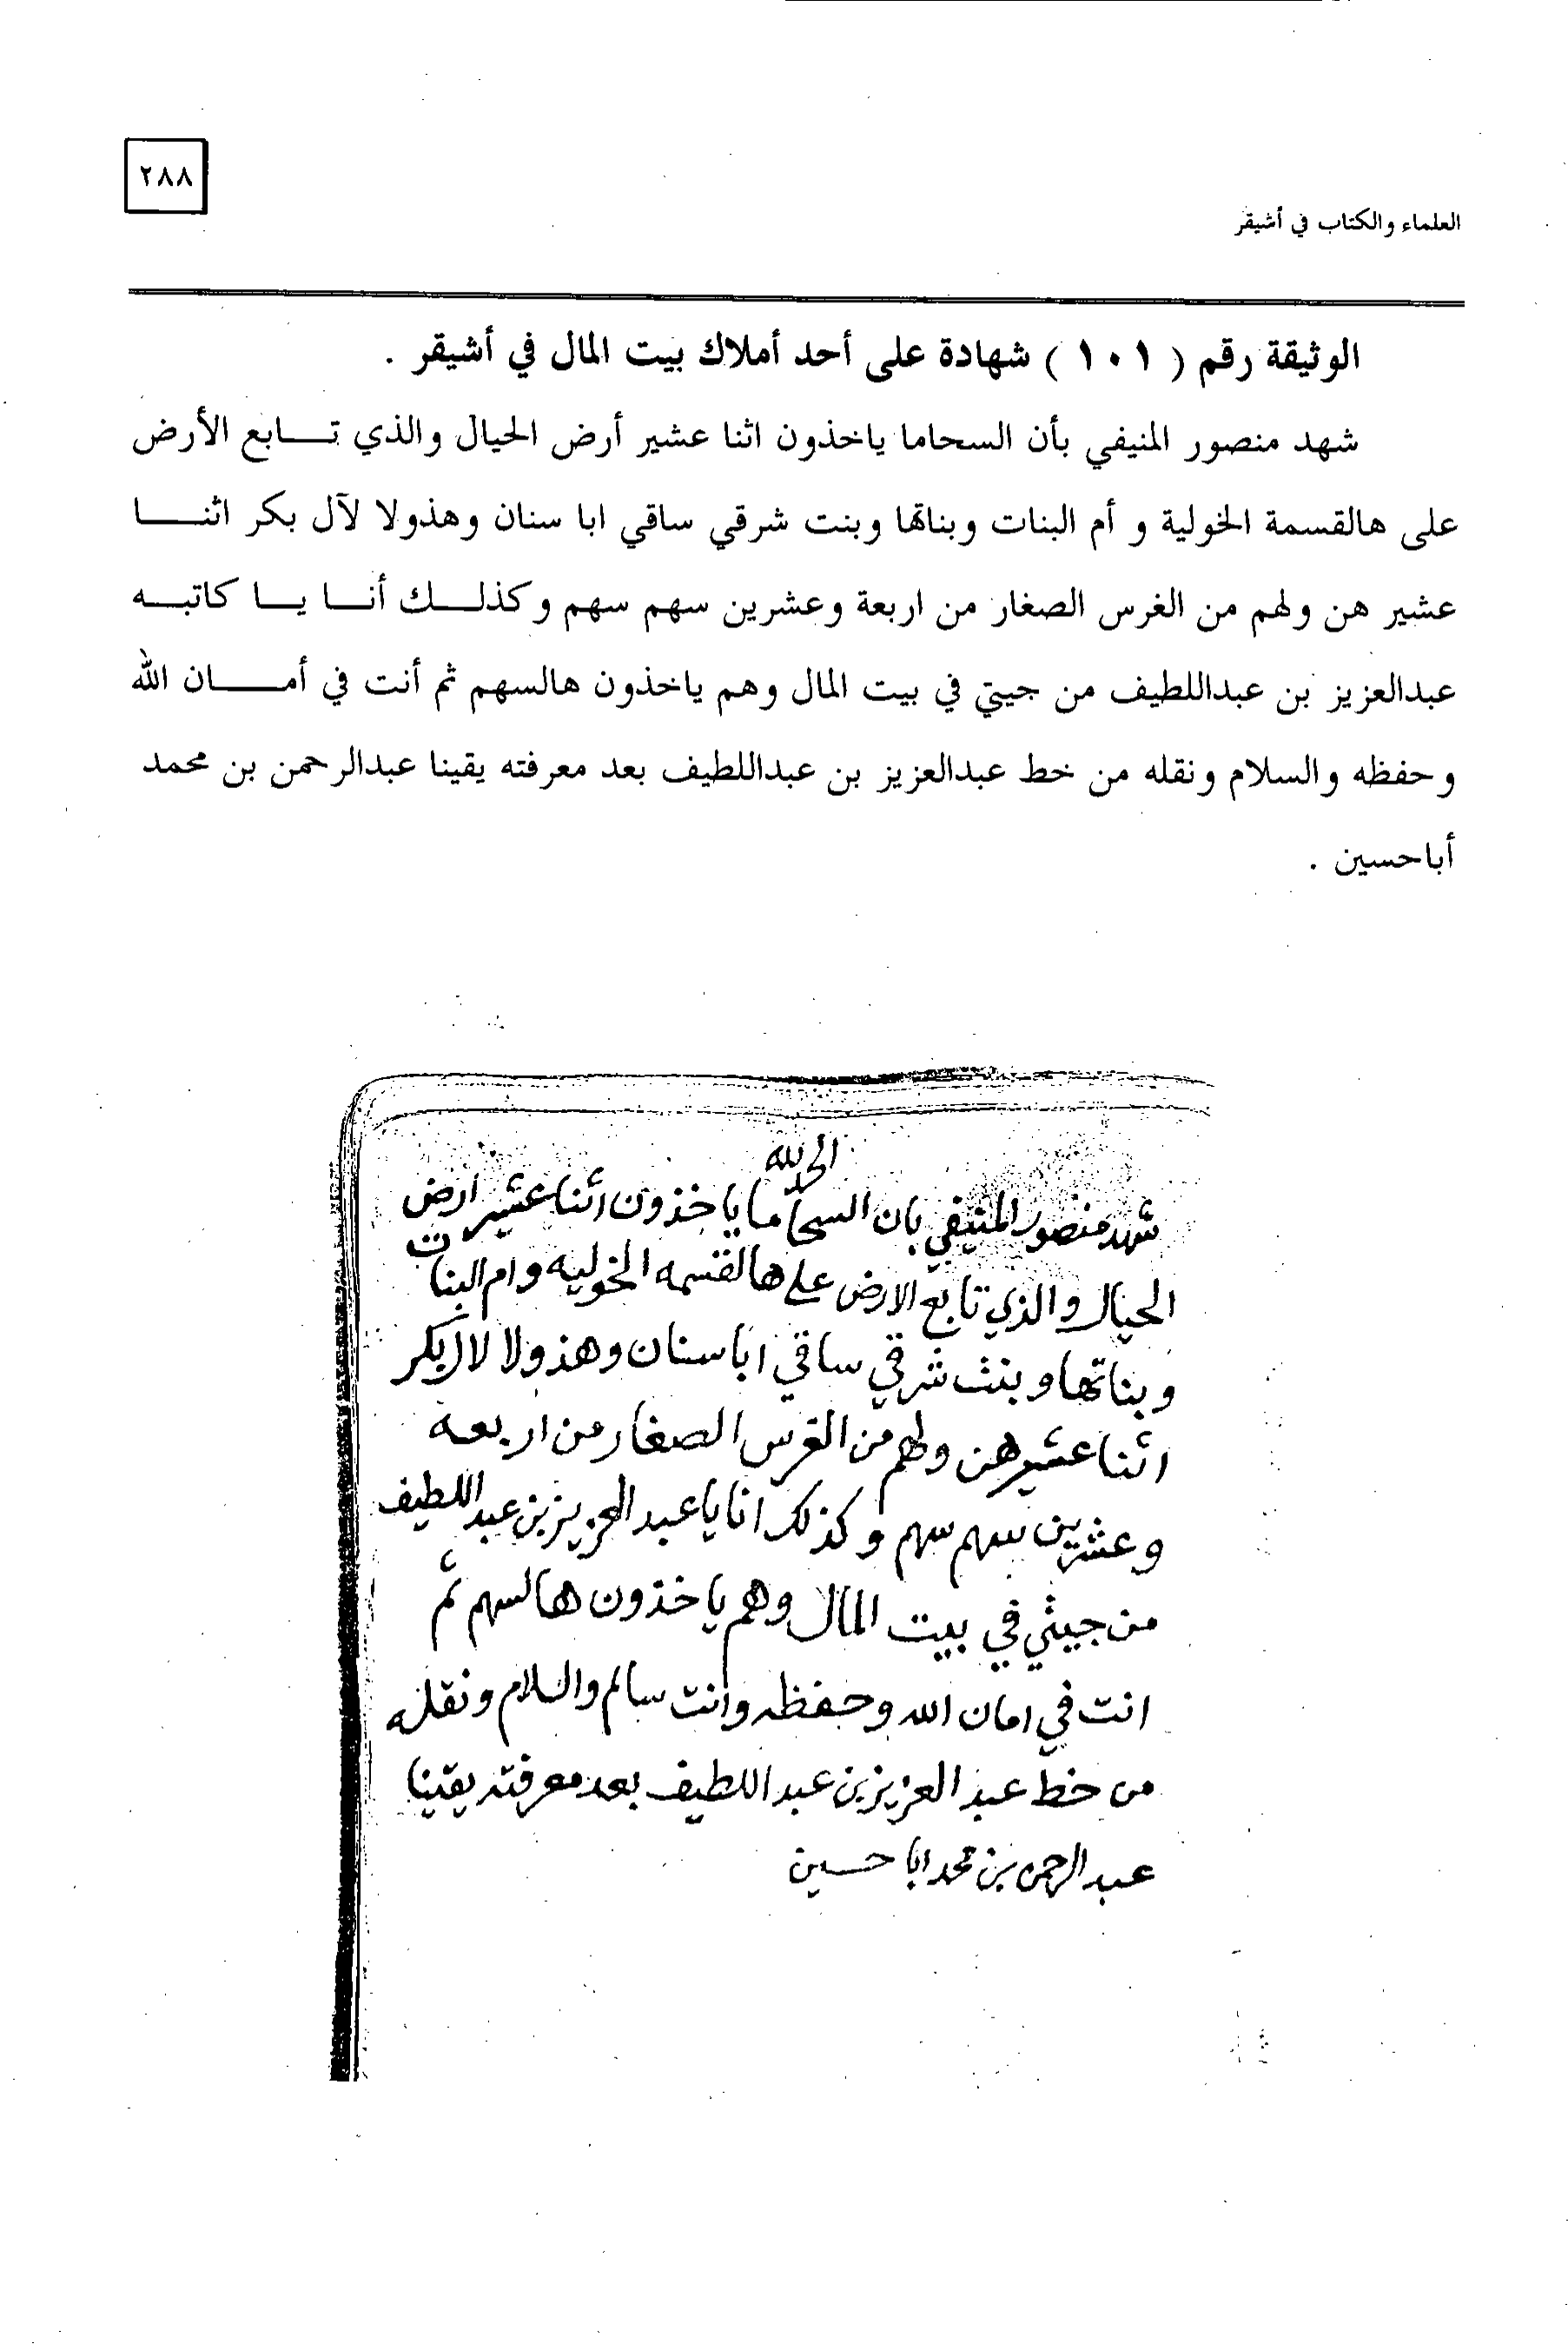 ٢٨٨
العلماء والكتاب في أشيقر
الوثيقة رقم ( ١٠١ ) شهادة على أحد أملاك بيت المال في أشيقر .
شهد منصور المنيفي بأن السحاما ياخذون اثنا عشير أرض الحيال والذي تابع الأرض
على هالقسمة الخولية و أم البنات وبناتها وبنت شرقي ساقي ابا سنان وهذولا لآل بكر اثنا
عشير هن ولهم من الغرس الصغار من اربعة وعشرين سهم سهم وكذلك أنا يا كاتبه
عبدالعزيز بن عبداللطيف من جيتي في بيت المال وهم ياخذون هالسهم ثم أنت في أمان الله
وحفظه والسلام ونقله من خط عبدالعزيز بن عبداللطيف بعد معرفته يقينا عبدالرحمن بن محمد
أباحسين .
الحمدلله
شهد منصور المنيفي بان السحاما ياخذون اثنا عشير ارض
الحيال والذي تابع الارض على هالقسمه الخوليه وام البنات
وبناتها وبنت شرقي ساقي اباسنان وهذولا لال بكر
اثنا عشير هن ولهم من الغرس الصغار من اربعه
وعشرين سهم سهم وكذلك انا يا عبد العزيز بن عبد اللطيف
من جيتي في بيت المال وهم ياخذون هالسهم ثم
انت في امان الله وحفظه وانت سالم والسلام ونقله
من خط عبد العزيز بن عبد اللطيف بعد معرفته يقينا
عبد الرحمن بن محمد ابا حسين